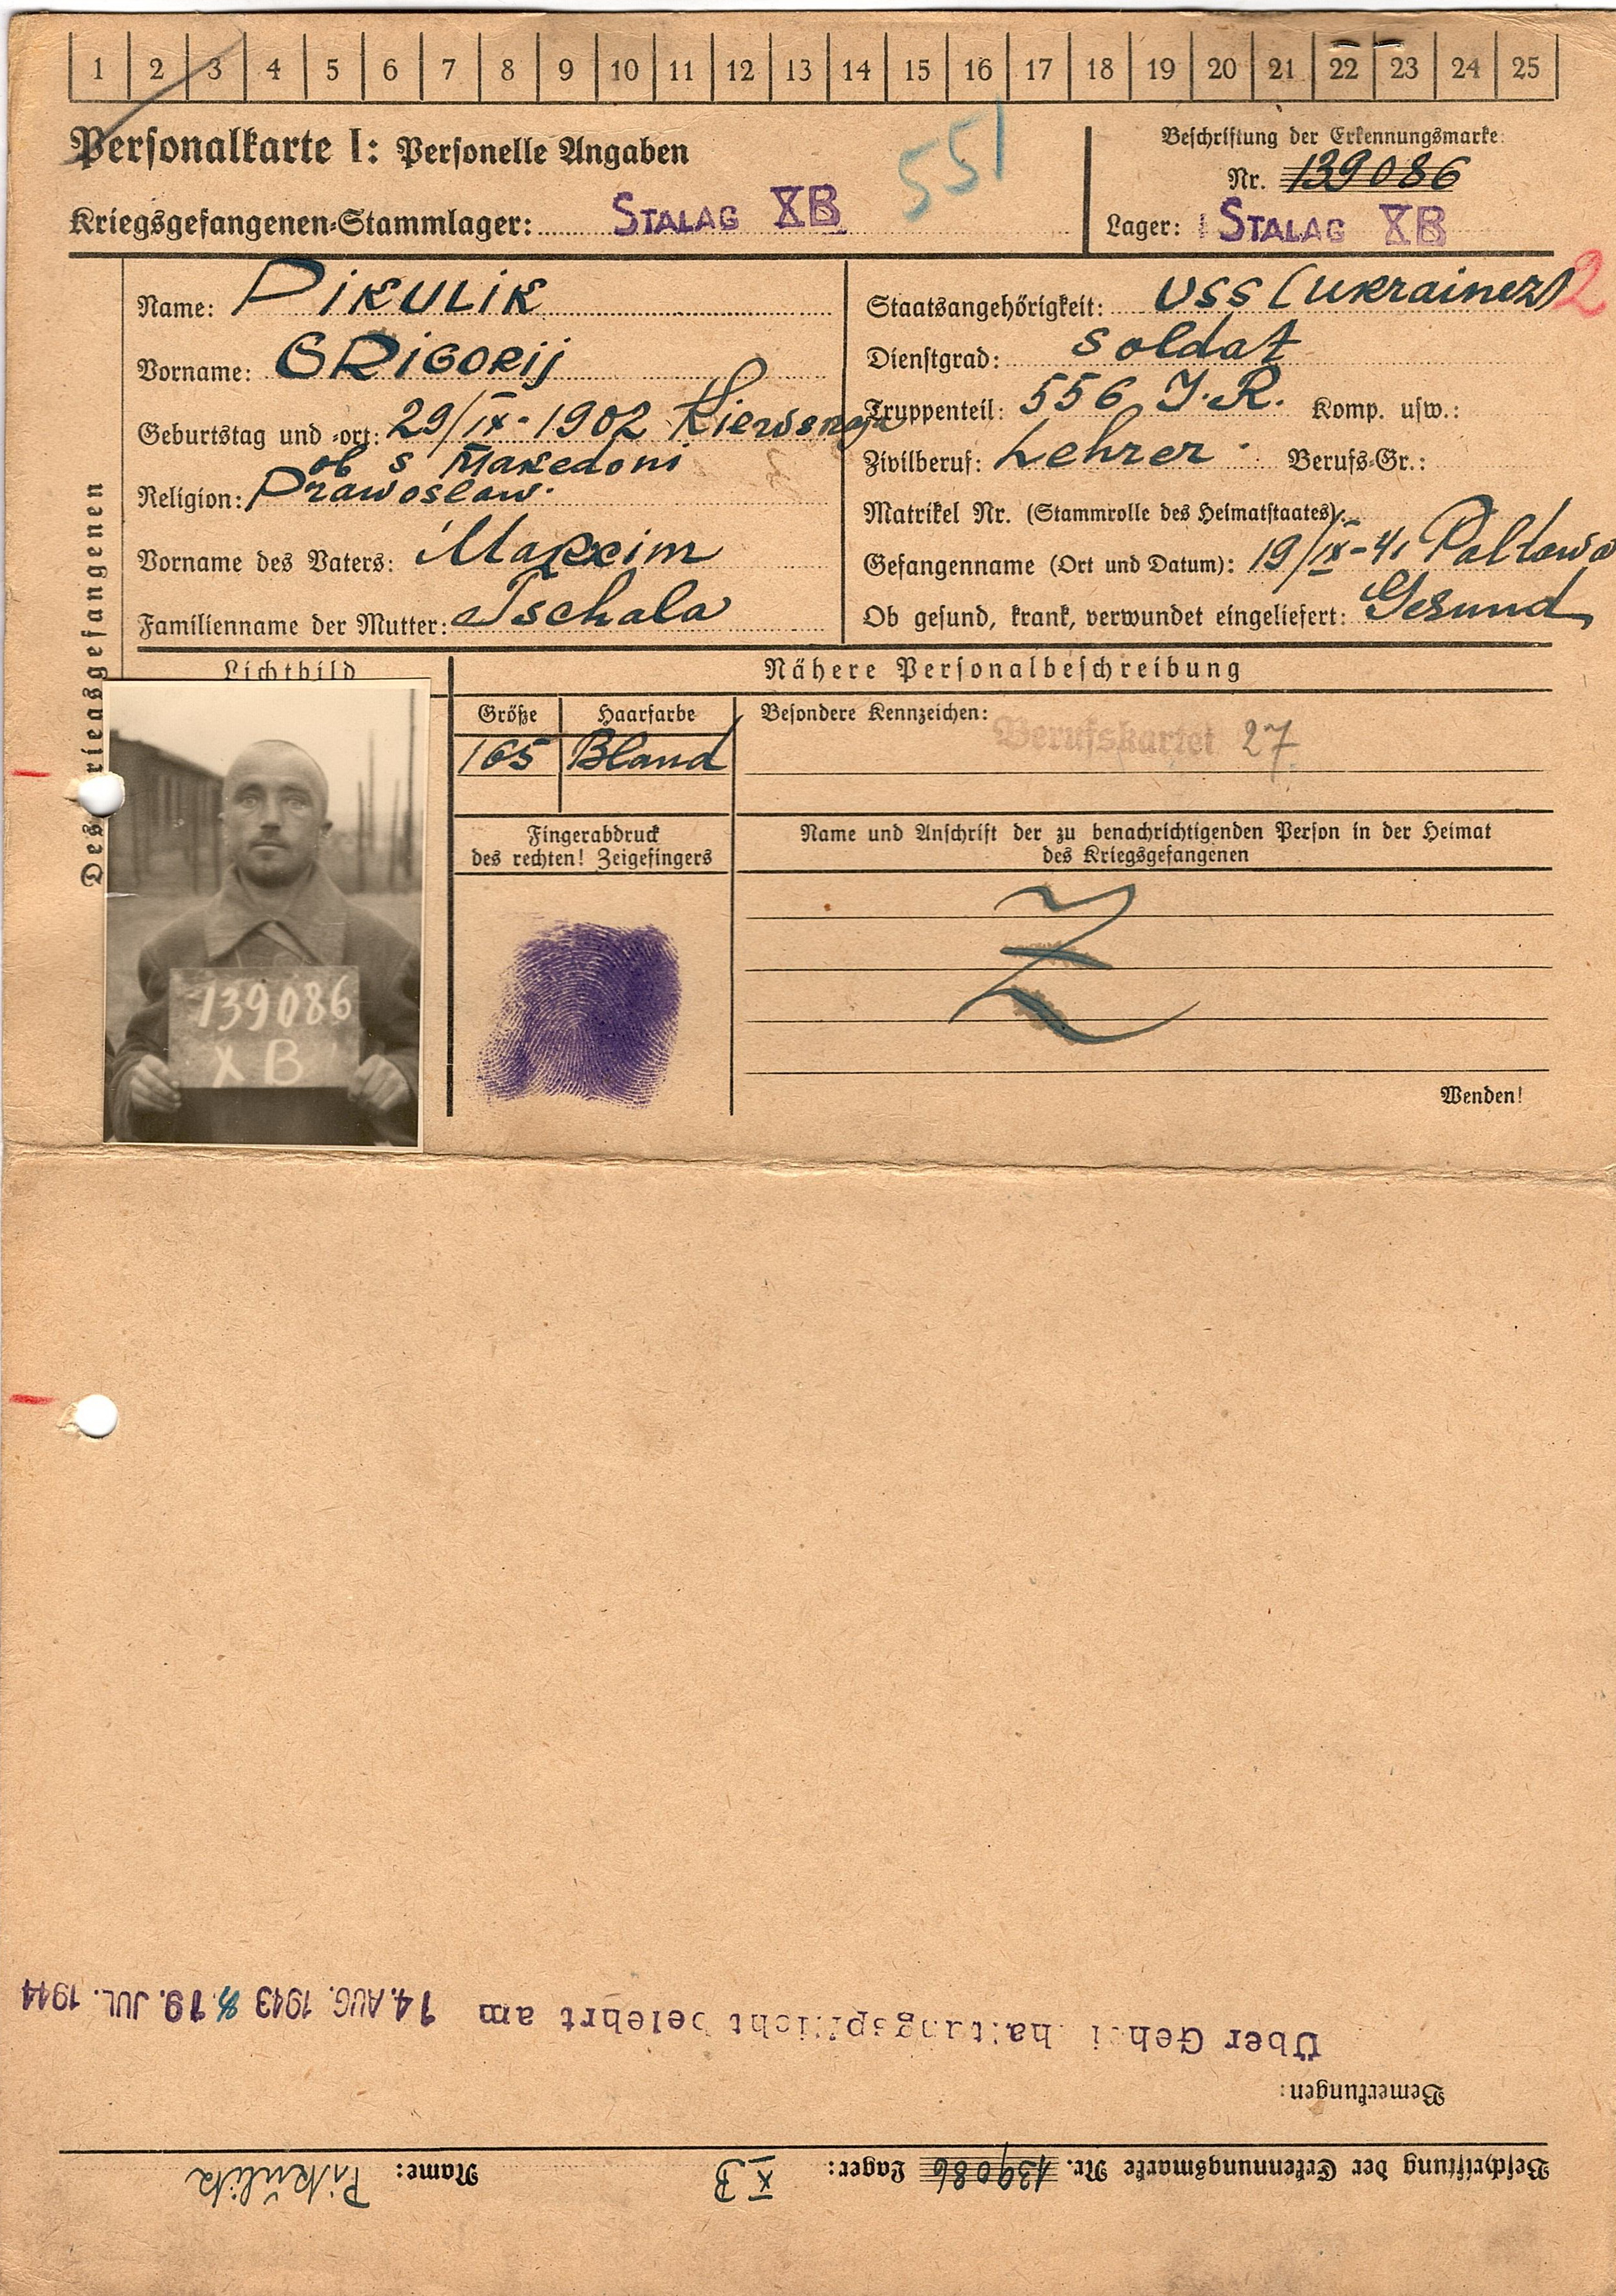 1 2 3 4 5 6 7 8 9 10 11 12 13 14 15 16 17 18 19 20 21 22 23 24 25
Personalkarte I: Personelle Angaben
551
Kriegsgefangenen-Stammlager: STALAG XB
Beschriftung der Erkennungsmarke
Nr. 139086
Lager: STALAG XB
Des Kriegsgefangenen
Name: PIKULIK
Vorname: GRIGORIJ
Geburtstag und -ort: 29/IX-1902 Kiewskaja
ob s Makedoni
Religion: Prawoslaw.
Vorname des Vaters: Makxim
Familienname der Mutter: Tschala
Staatsangehörigkeit: USS (Ukrainer) 2
Dienstgrad: Soldat
Truppenteil: 556 J.R. Komp. usw.:
Zivilberuf: Lehrer Berufs-Gr.:
Matrikel Nr. (Stammrolle des Heimatstaates)
Gefangenname (Ort und Datum): 19/IX-41 Poltawa
Ob gesund, krank, verwundet eingeliefert: Gesund
Lichtbild
139086
X B
Nähere Personalbeschreibung
Größe Haarfarbe
165 Bland
Besondere Kennzeichen:
Berufskartei 27
Fingerabdruck
des rechten! Zeigefingers
Name und Anschrift der zu benachrichtigenden Person in der Heimat
des Kriegsgefangenen
Z
Wenden!
Beschriftung der Erkennungsmarke Nr. 139086 Lager: XB Name: Pikulik
Bemerkungen:
Über Geheimhaltungspflicht belehrt am 14. AUG. 1943 19. JUL. 1944